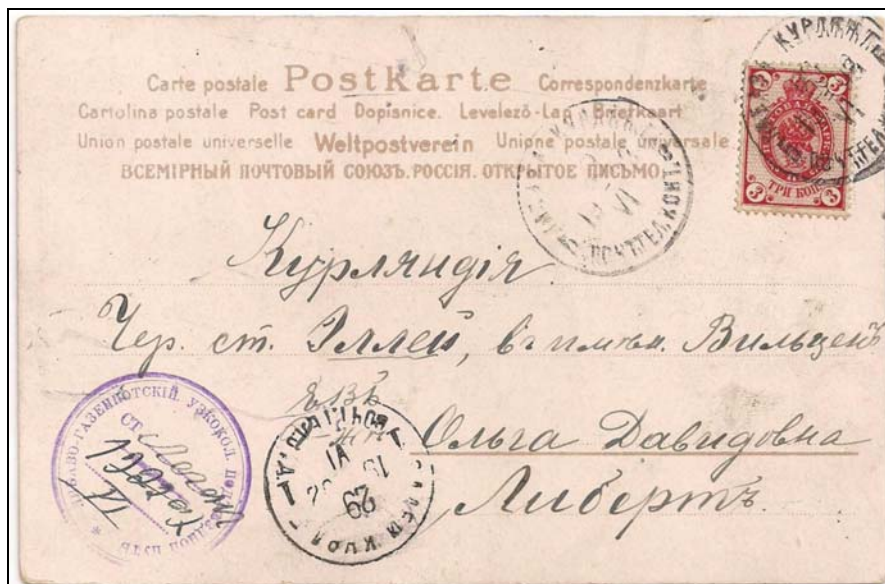 Carte postale Postkarte Correspondenzkarte
Cartolina postale Post card Dopisnice. Levelező-Lap Briefkaart
Union postale universelle Weltpostverein Unione postale universale
ВСЕМІРНЫЙ ПОЧТОВЫЙ СОЮЗЪ. РОССІЯ. ОТКРЫТОЕ ПИСЬМО.
3 3
ТРИ КОП.
3 3
Курляндія.
Чер. ст. Эллей, въ имѣн. Вильценъ
ЕВБ
Ольга Давидовна
Либертъ
ЛИБАВО-ГАЗЕНПОТСКІЙ УЗКОКОЛ. ПОДЪѢЗДНОЙ ПУТЬ
СТ.
VI
29